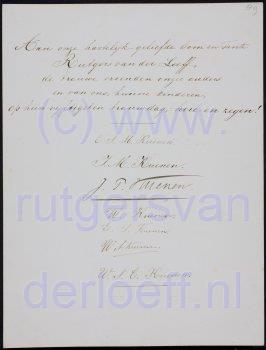 Aan onze hartelijk geliefde Oom en Tante
Rutgers van der Loeff,
de trouwe vrienden onzer ouders
en van ons, hunne kinderen,
op hun vijftigsten trouwdag, heil en zegen!
(c) www.
J. M. Kuenen.
J. P. Kuenen
rutgersvan
Kuenen
W. A. Kuenen
derloeff.nl